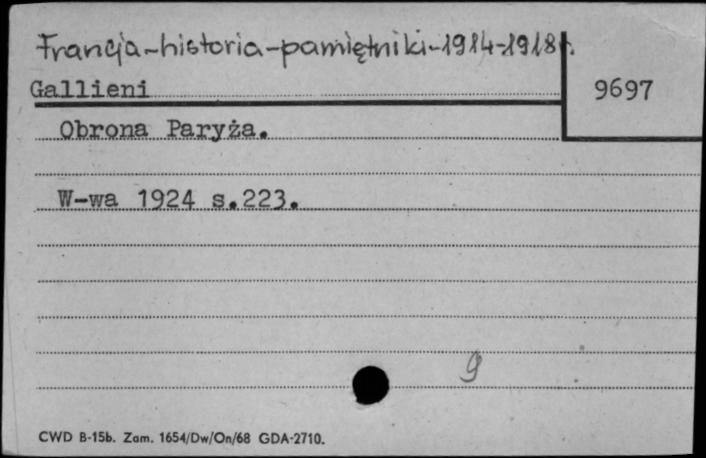 Francja-historia-pamiętniki-1914-1918r.
Gallieni
9697
Obrona Paryża.
W-wa 1924 s.223.
9
CWD B-15b. Zam. 1654/Dw/On/68 GDA-2710.